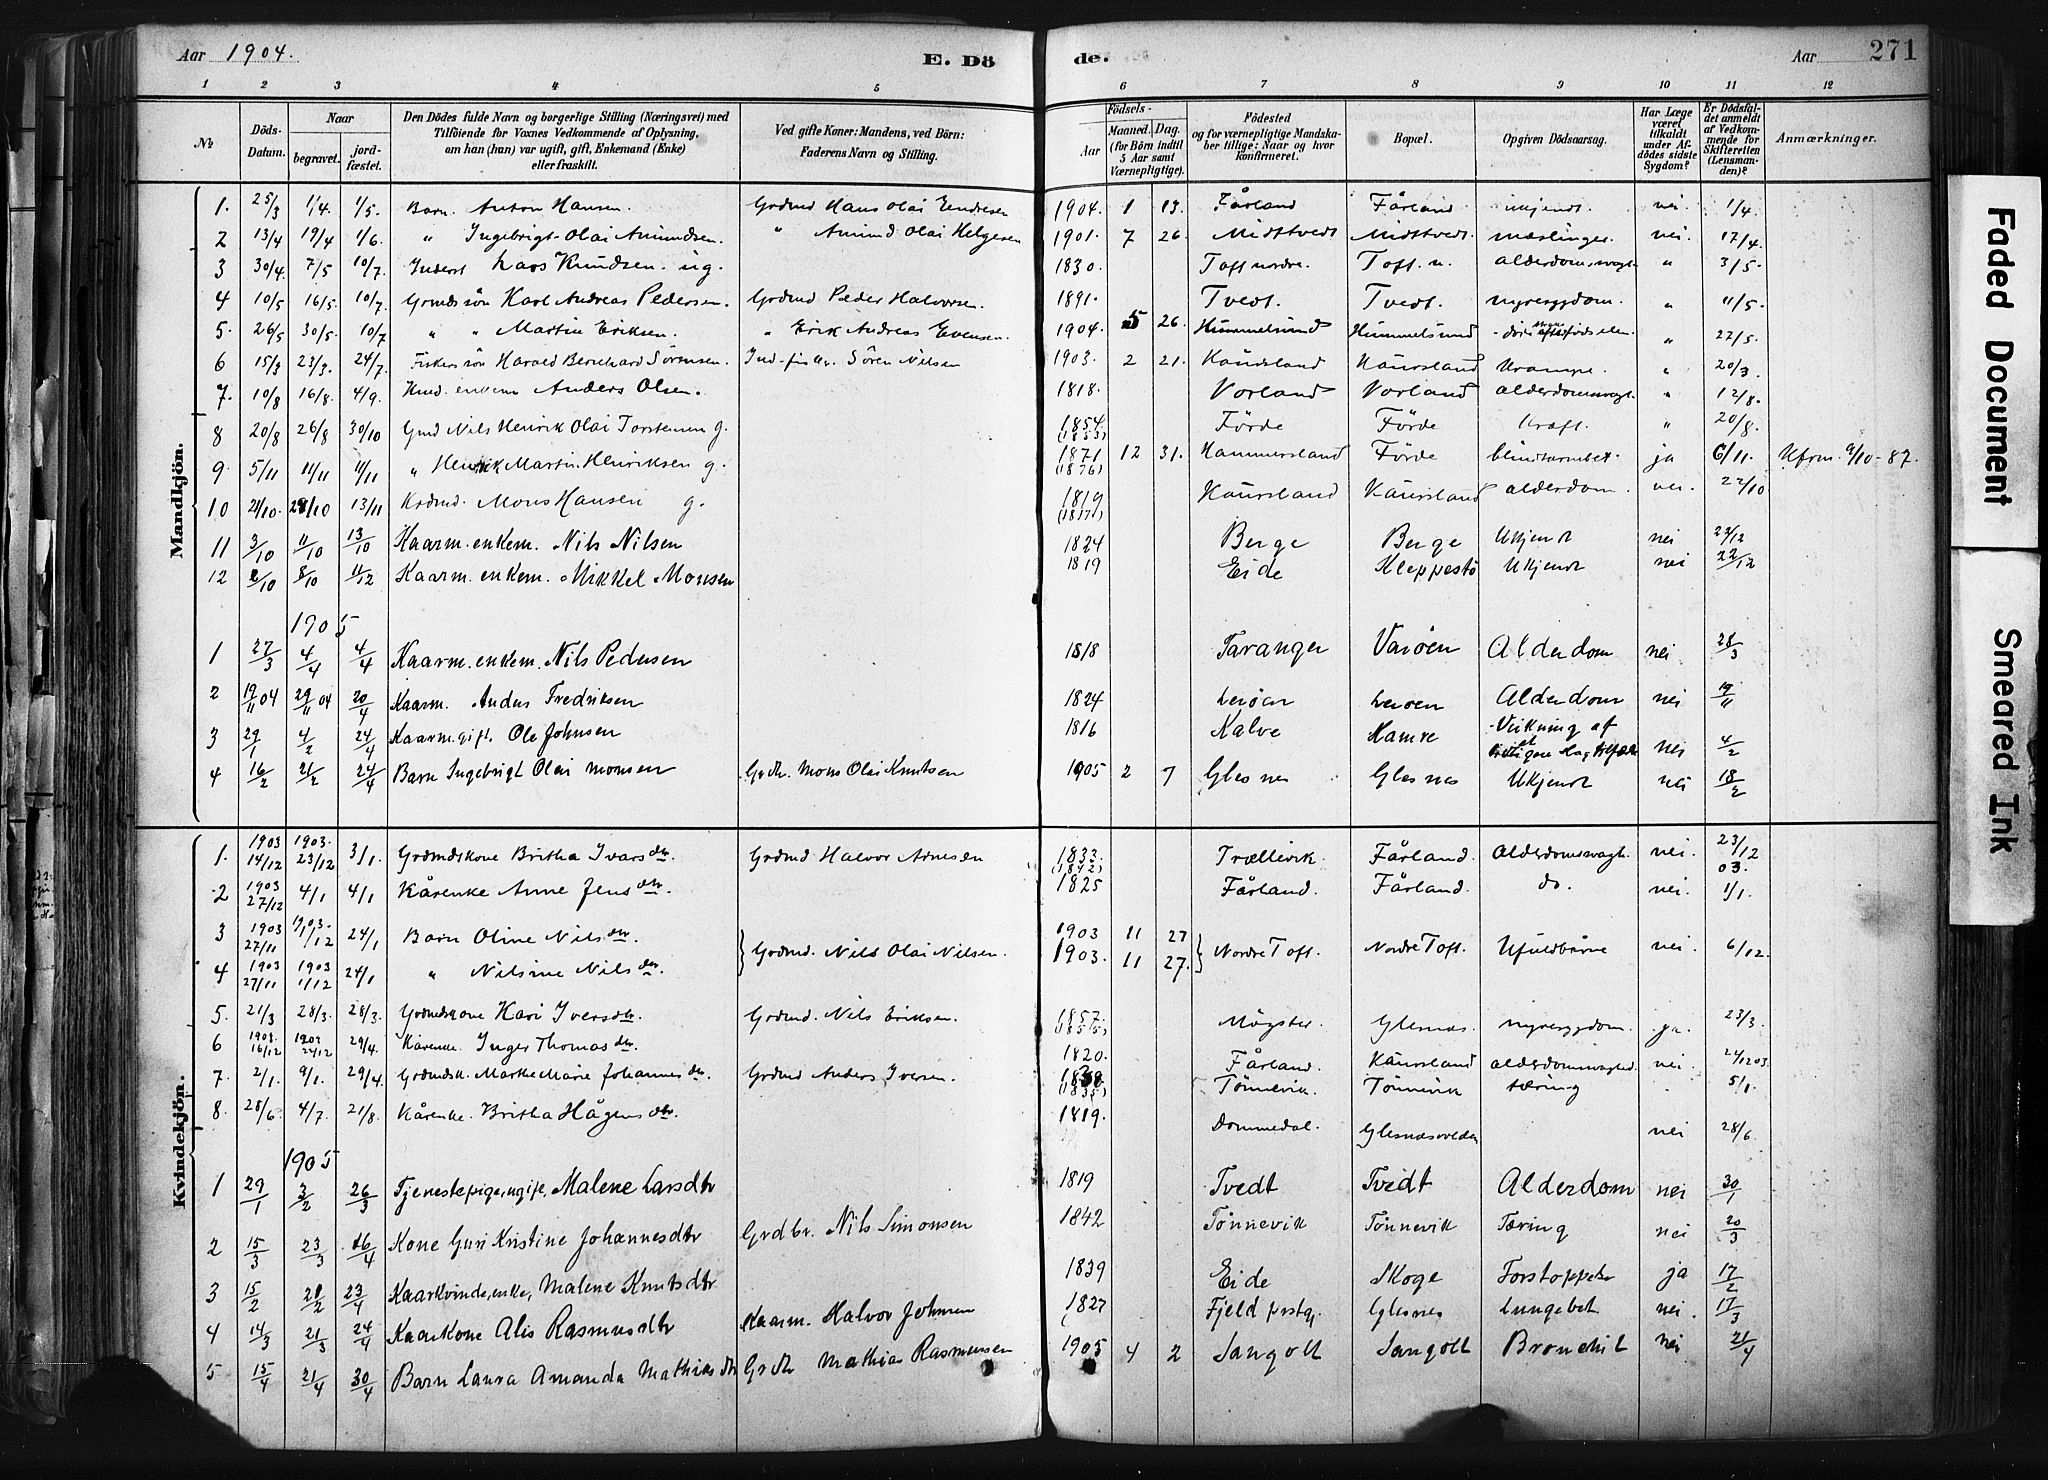 Aar 1904. E. Dö
de. Aar 271
1 2 3 4 5 6 7 8 9 10 11 12
№ Döds-Datum. Naar begravet. jord-fæstet. Den Dödes fulde Navn og borgerlige Stilling (Næringsvei) med Tilföiende for Voxnes Vedkommende af Oplysning, om han (hun) var ugift, gift, Enkemand (Enke) eller fraskilt. Ved gifte Koner: Mandens, ved Börn: Faderens Navn og Stilling. Födsels- Aar Maaned. Dag. (for Börn indtil 5 Aar samt Værnepligtige). Födested og for værnepligtige Mandska-ber tillige: Naar og hvor konfirmeret. Bopæl. Opgiven Dödsaarsag. Har Læge været tilkaldt under Af-dödes sidste Sygdom? Er Dödsfal-det anmeldt af Vedkom-mende for Skifteretten (Lensman-den)? Anmærkninger.
Mandkjön.
1. 25/3 1/4. 1/5. Barn. Anton Hansen. Grdmd Hans Olai Endresen 1904. 1 13. Fårland Fårland ukjendt. nei 1/4.
2 13/4 19/4 1/6. " Ingebrigt Olai Amundsen. " Amund Olai Helgesen 1901. 7 26. Midttvedt Midttvedt. mæslinger. nei. 17/4.
3 30/4. 7/5 10/7. Inderst Lars Knudsen. ug. 1830. Toft nordre. Toft. n. alderdomsvagh. " 3/5.
4 10/5 16/5. 10/7. Grmds sön Karl Andreas Pedersen. Grdmd Peder Halvorsen. 1891. Tvedt. Tvedt. nyresygdom. " 11/5.
5. 26/5 30/5. 10/7 " " Martin Eriksen. " Erik Andreas Evensen. 1904. 5 26. Hummelsund Hummelsund " 27/5.
6 15/3 23/3. 24/7. Fiskers sön Harald Bernhard Sörensen. Sören Nilsen 1903. 2 21. Kaursland Kaursland Krampe. " 20/3.
7. 10/8 16/8. 4/9. enkem Anders Olsen. 1818. Vorland Vorland alderdomsvagh. " 12/8.
8 20/8 26/8 30/10 Grmd Nils Henrik Olai Torstensen g. 1854. (1853) Förde Förde Kræft. " 20/8.
9. 5/11 11/11 11/11 " Henrik Martin Henriksen g. 1871 (1876) 12 31. Hammersland Förde blindtarmbet. ja 6/11. Ufrm. 9/10-87.
10 21/10. 28/10 13/11 Krdmd. Mons Hansen g. 1819 (1817) Kaursland Kaursland alderdom. nei. 22/10
11 3/10 11/10 13/10 Kaarm. enkem. Nils Nilsen 1824 Berge Berge Ukjendt nei 22/12
12 2/10 8/10 11/12 Kaarm. enkem. Mikkel Monsen 1819 Eide Kleppestö Ukjendt nei 22/12
1905
1 27/3 4/4 4/4 Kaarm. enkem. Nils Pedersen 1818 Taranger Varöen Alderdom nei 28/3
2 19/11 04 29/11 04 20/4 Kaarm. Anders Fredriksen 1824 Leröen Leröen Alderdom nei 19/11
3 29/1 4/2 24/4 Kaarm. gift. Ole Johnsen 1816 Kalve Hamre Virkning af et tidligere slagtilfælde nei 4/2
4 16/2 21/2 24/4 Barn Ingebrigt Olai Monsen Grdbr. Mons Olai Knutsen 1905 2 7 Glesnes Glesnes Ukjendt nei 18/2
Kvindekjön.
1. 1903 14/12 1903. 23/12 3/1. Grdmdskone Britha Ivarsdtr. Grdmd Halvor Arnesen 1833. (1842) Trællevik. Fårland. Alderdomsvagh. nei. 23/12 03.
2 1903 27/12 4/1 4/1 Kårenke Anne Jensdtr. 1825 Fårland. Fårland. do. nei. 1/1.
3 1903 27/11 1903. 1/12 24/1 Barn Oline Nilsdtr. } Grdmd. Nils Olai Nilsen. 1903 11 27 } Nordre Toft. Nordre Toft. Ufuldbårne nei. 6/12.
4 1903 27/11 1903 1/12 24/1 " Nilsine Nilsdtr. 1903. 11 27.
5. 21/3 28/3. 28/3. Grdmdskone Kari Iversdtr. Grdmd. Nils Eriksen. 1857. (1855) Mögster. Glesnes. nyresygdom. ja. 23/3.
6 1903. 16/12 1903 24/12 29/4. Kårenke. Inger Thomasdtr. 1820. Fårland. Kaursland alderdomsvaghed. nei. 24/12 03.
7. 2/1. 9/1. 29/4. Grdmdsk. Marthe Marie Johannesdtr. Grdmd Anders Iversen. (1835) Tönnevik. Tönnevik tæring " 5/1.
8. 28/6. 4/7. 21/8. Kårenke. Britha Hågensdtr. 1819. Dommedal. nei 28/6.
1905
1 29/1 3/2 26/3 Tjenestepige, ugift, Malene Larsdtr 1819 Tvedt Tvedt Alderdom nei 30/1
2 15/3 23/3 16/4 Kone Guri Kristine Johannesdtr Grdbr. Nils Simonsen 1842 Tönnevik Tönnevik Tæring nei 20/3
3 15/2 21/2 23/4 Kaarkvinde, enke, Malene Knutsdtr 1839 Eide Skoge Forstoppelse ja 17/2
4 14/3 21/3 24/4 Kaarkone Alis Rasmusdtr Kaarm. Halvor Johnsen 1827 Fjeld prstg. Glesnes Lungebet. nei. 17/3
5 15/4 21/4 30/4 Barn Laura Amanda Mathiasdtr Grdbr Mathias Rasmussen 1905 4 2 Sangolt Sangolt Bronchit nei 21/4
Faded Document
Smeared Ink